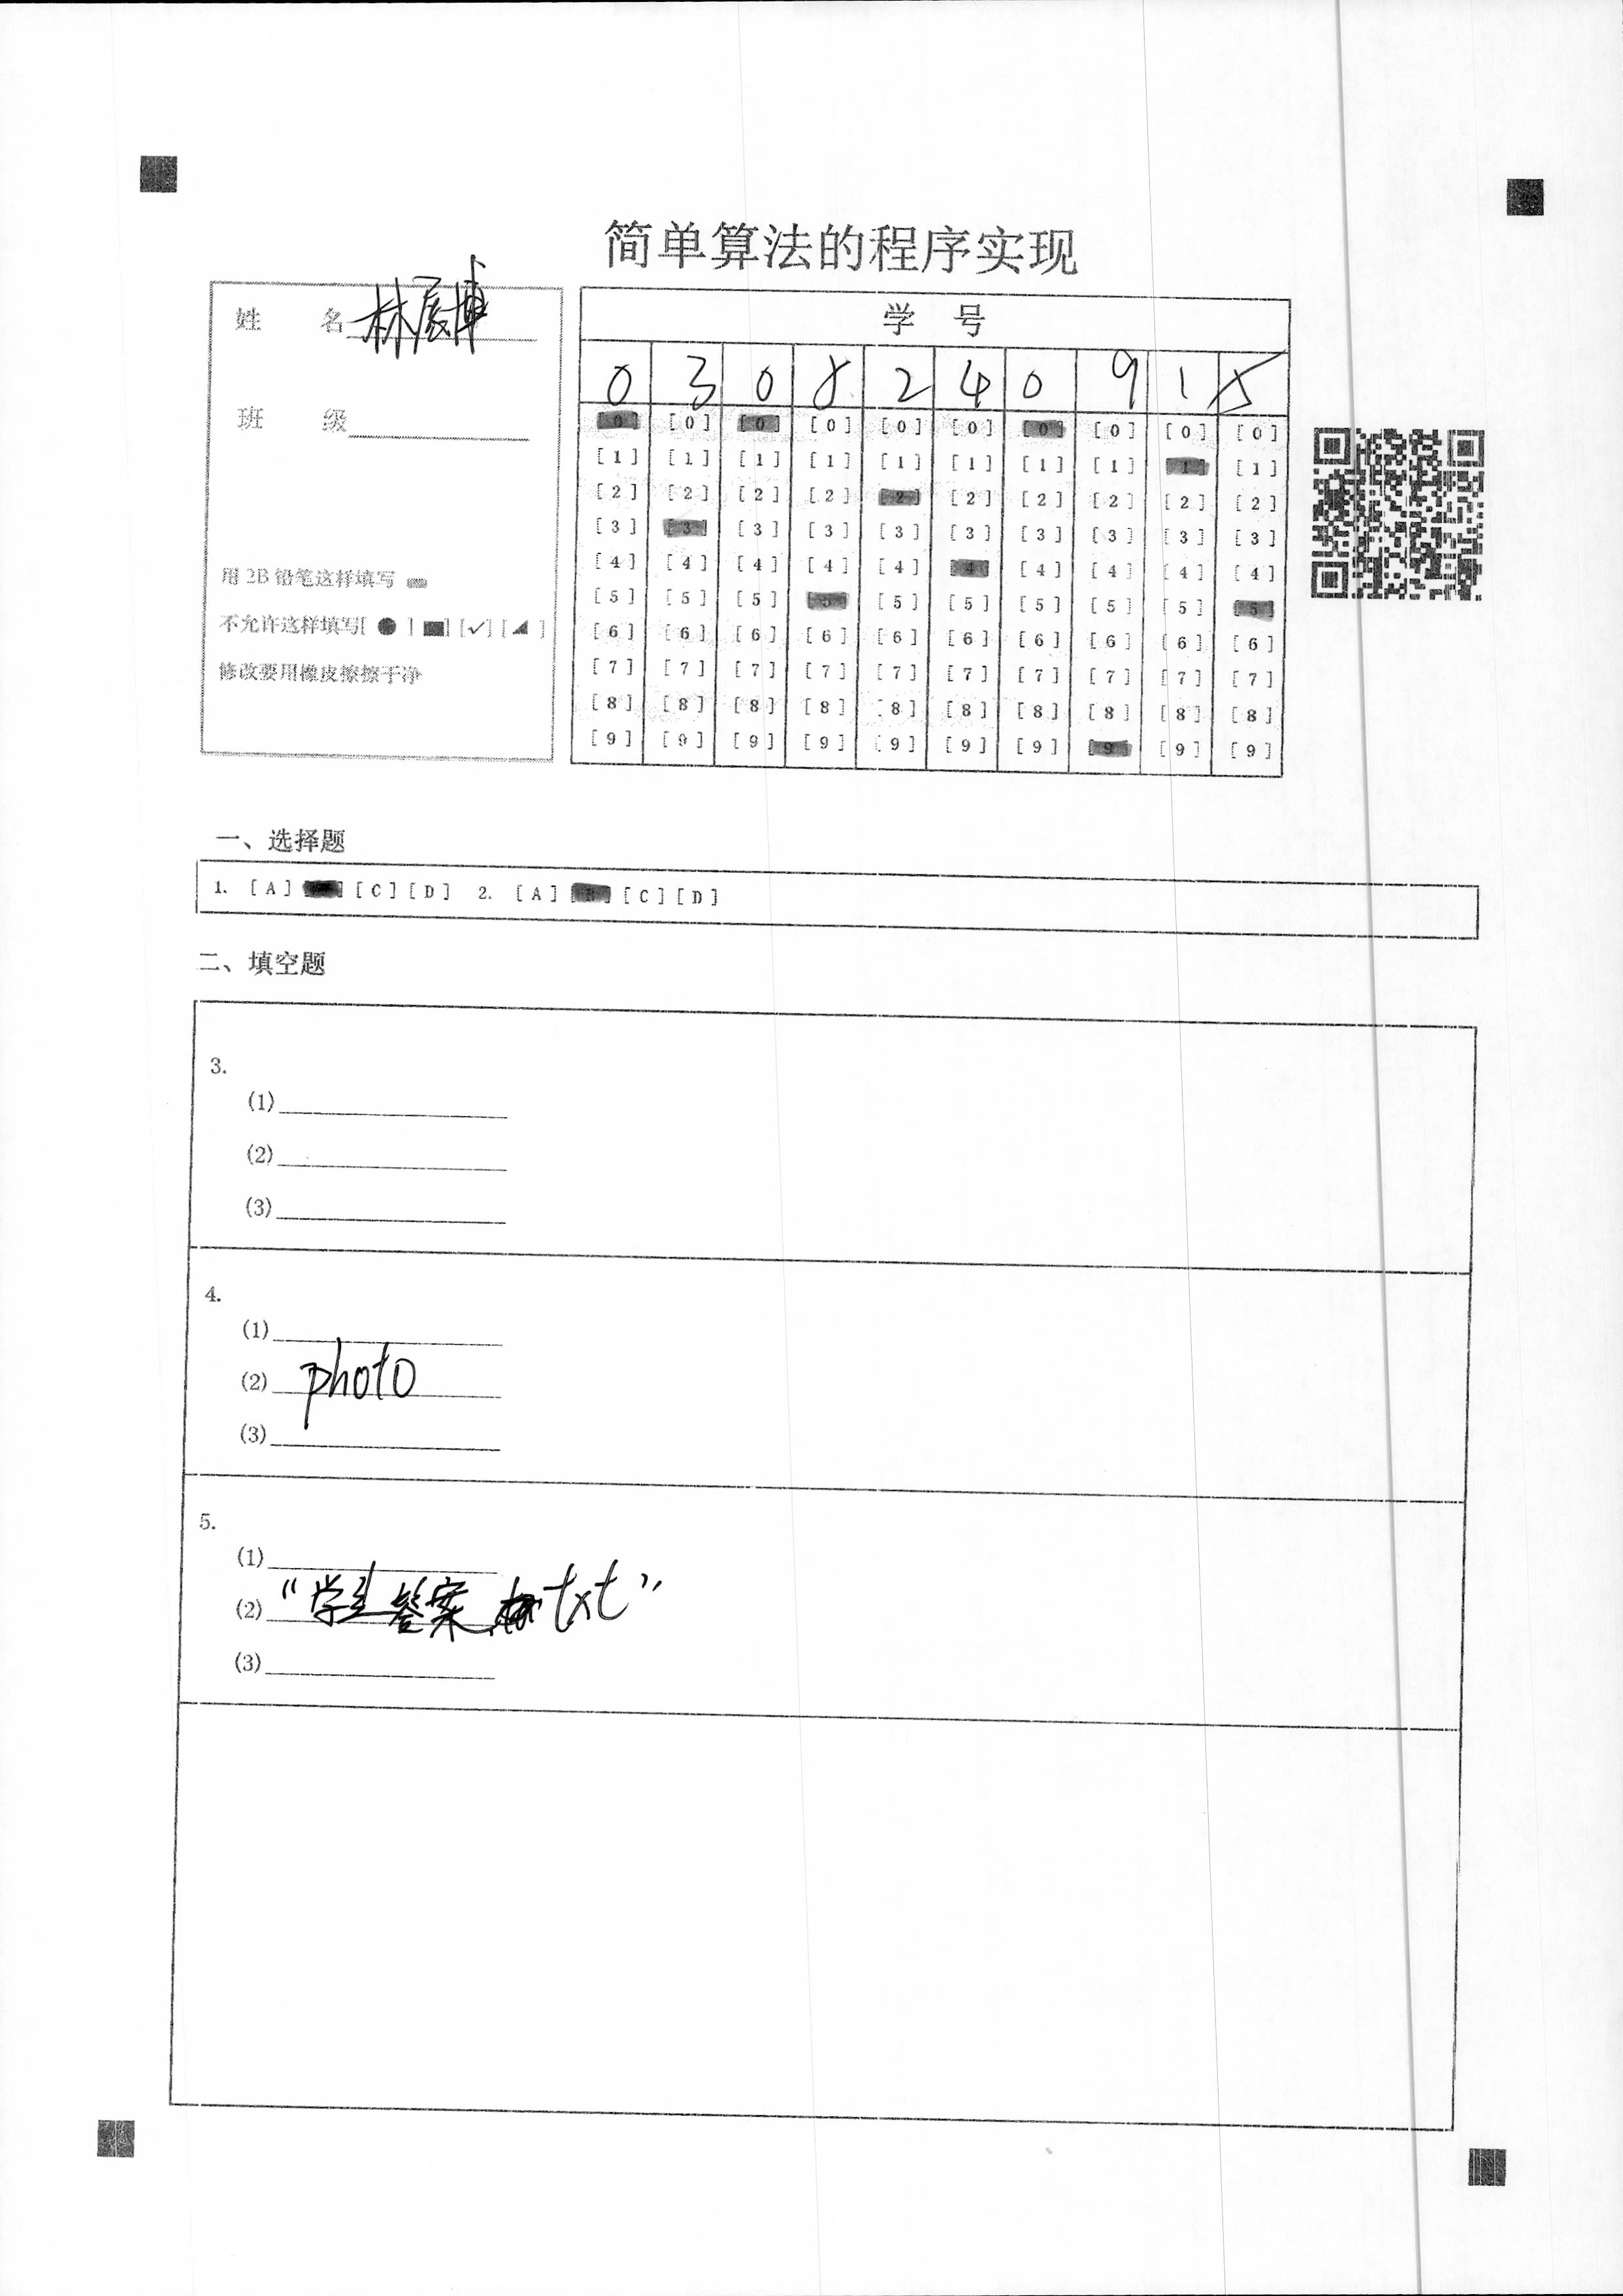 简单算法的程序实现
姓 名 林展博
班 级
用 2B 铅笔这样填写
不允许这样填写[ ● ] [■] [✓] [◢ ]
修改要用橡皮擦擦干净
学 号
0 3 0 8 2 4 0 9 1 5
[0] [0] [0] [0] [0] [0] [0] [0] [0] [0]
[1] [1] [1] [1] [1] [1] [1] [1] [1] [1]
[2] [2] [2] [2] [2] [2] [2] [2] [2] [2]
[3] [3] [3] [3] [3] [3] [3] [3] [3] [3]
[4] [4] [4] [4] [4] [4] [4] [4] [4] [4]
[5] [5] [5] [5] [5] [5] [5] [5] [5] [5]
[6] [6] [6] [6] [6] [6] [6] [6] [6] [6]
[7] [7] [7] [7] [7] [7] [7] [7] [7] [7]
[8] [8] [8] [8] [8] [8] [8] [8] [8] [8]
[9] [9] [9] [9] [9] [9] [9] [9] [9] [9]
一、选择题
1. [A] [B] [C] [D] 2. [A] [B] [C] [D]
二、填空题
3.
(1)
(2)
(3)
4.
(1)
(2) photo
(3)
5.
(1)
(2) “学生答案.txt”
(3)